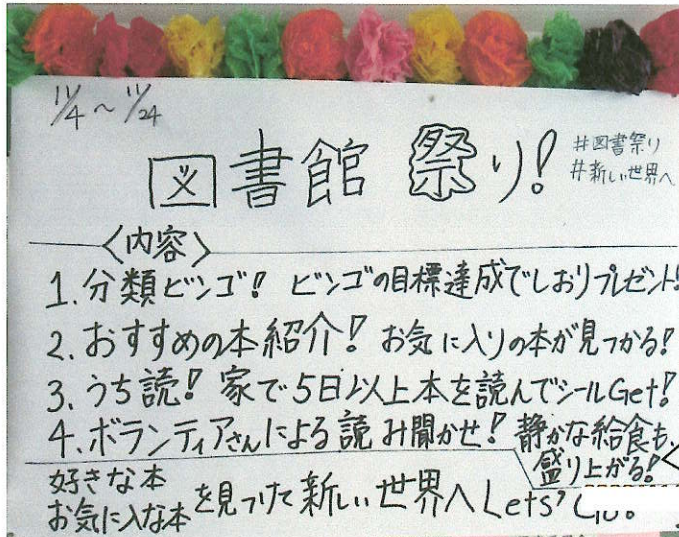 11/4～11/24
図書館 祭り!
#図書祭り
#新しい世界へ
〈内容〉
1.分類ビンゴ! ビンゴの目標達成でしおりプレゼント!
2.おすすめの本紹介! お気に入りの本が見つかる!
3.うち読! 家で5日以上本を読んでシールGet!
4.ボランティアさんによる読み聞かせ! 静かな給食も、
盛り上がる!
好きな本
お気に入な本
を見つけて新しい世界へLets'